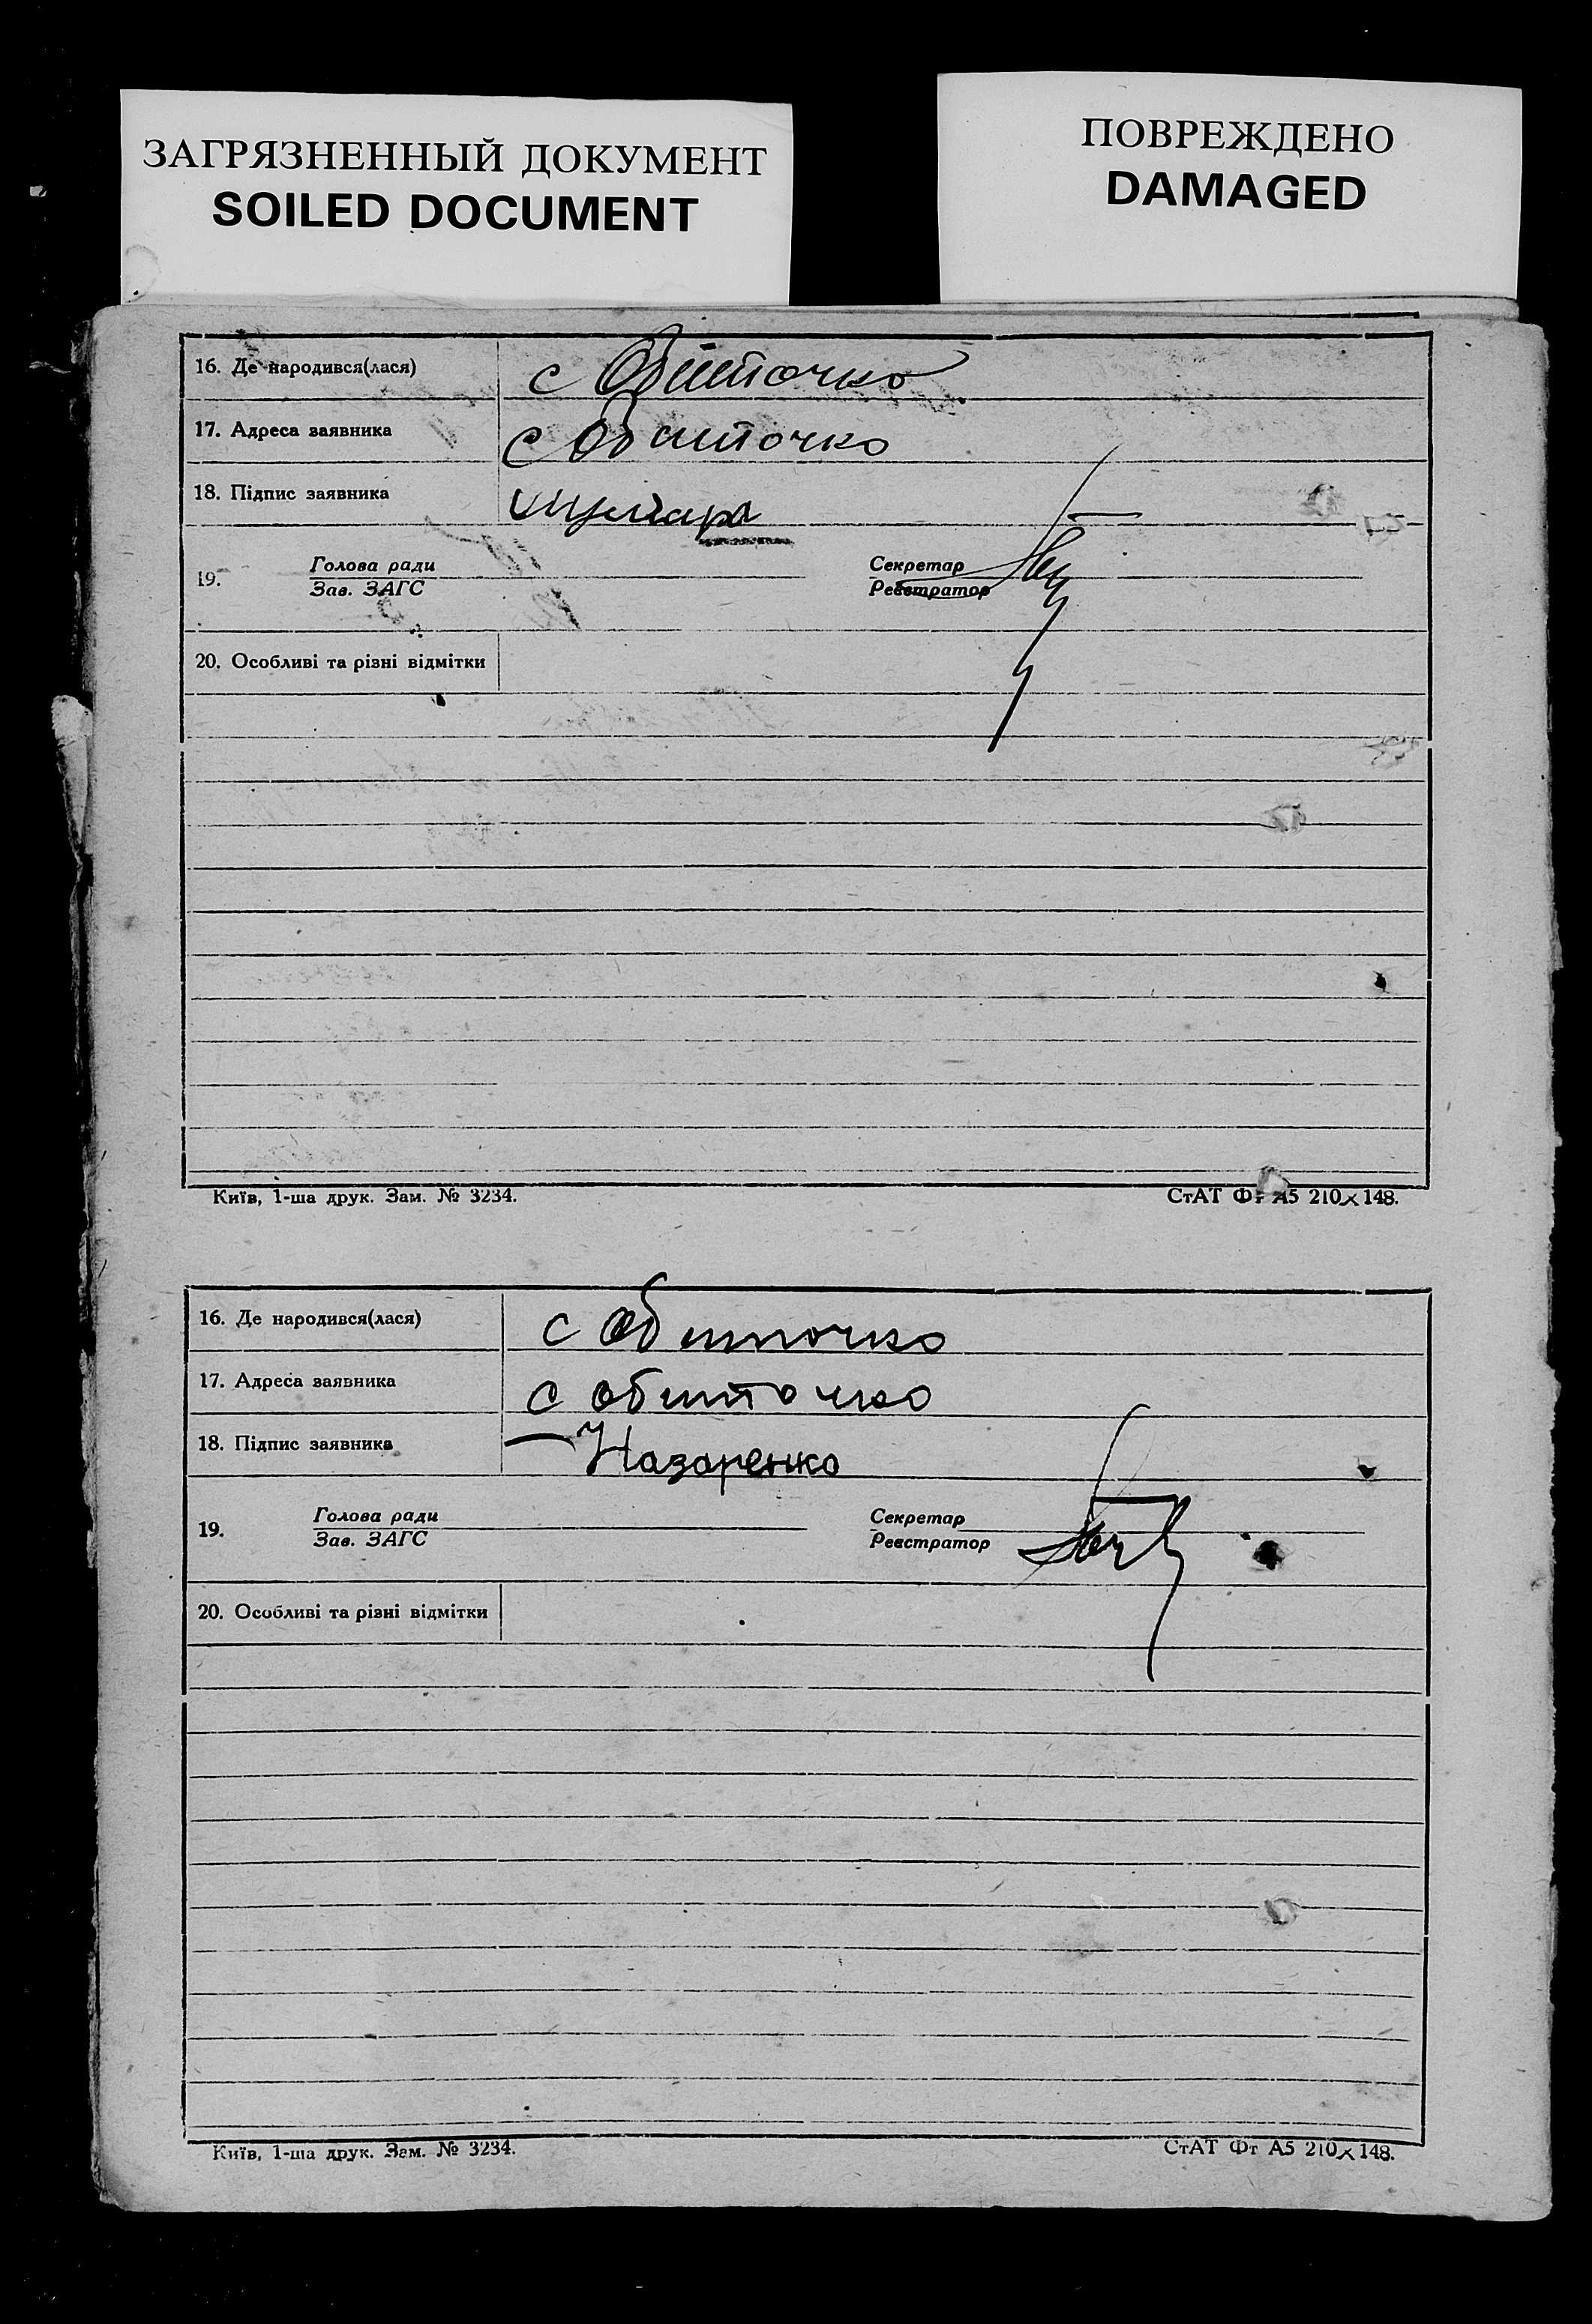 ЗАГРЯЗНЕННЫЙ ДОКУМЕНТ
SOILED DOCUMENT
ПОВРЕЖДЕНО
DAMAGED
16. Де народився(лася) с Обиточко
17. Адреса заявника с Обиточко
18. Підпис заявника
19. Голова ради Секретар
Зав. ЗАГС Реєстратор
20. Особливі та різні відмітки
Київ, 1-ша друк. Зам. № 3234. СтАТ Фт А5 210×148.
16. Де народився(лася) с Обиточко
17. Адреса заявника с обиточко
18. Підпис заявника Назаренко
19. Голова ради Секретар
Зав. ЗАГС Реєстратор
20. Особливі та різні відмітки
Київ, 1-ша друк. Зам. № 3234. СтАТ Фт А5 210×148.